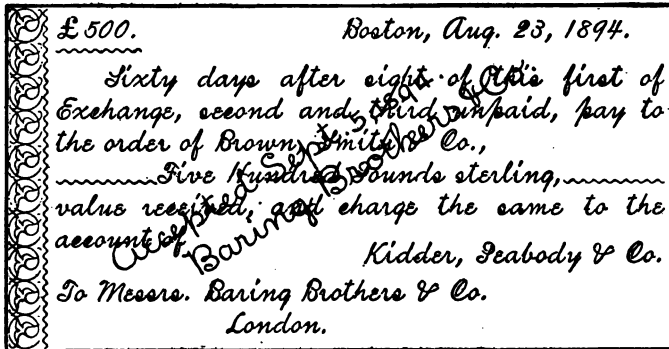 £ 500. Boston, Aug. 23, 1894.
Sixty days after sight of this first of
Exchange, second and third unpaid, pay to
the order of Brown, Smith & Co.,
Five Hundred Pounds sterling,
value received, and charge the same to the
account of
Kidder, Peabody & Co.
To Messrs. Baring Brothers & Co.
London.
Accepted Sept. 5, 1894.
Baring Brothers & Co.